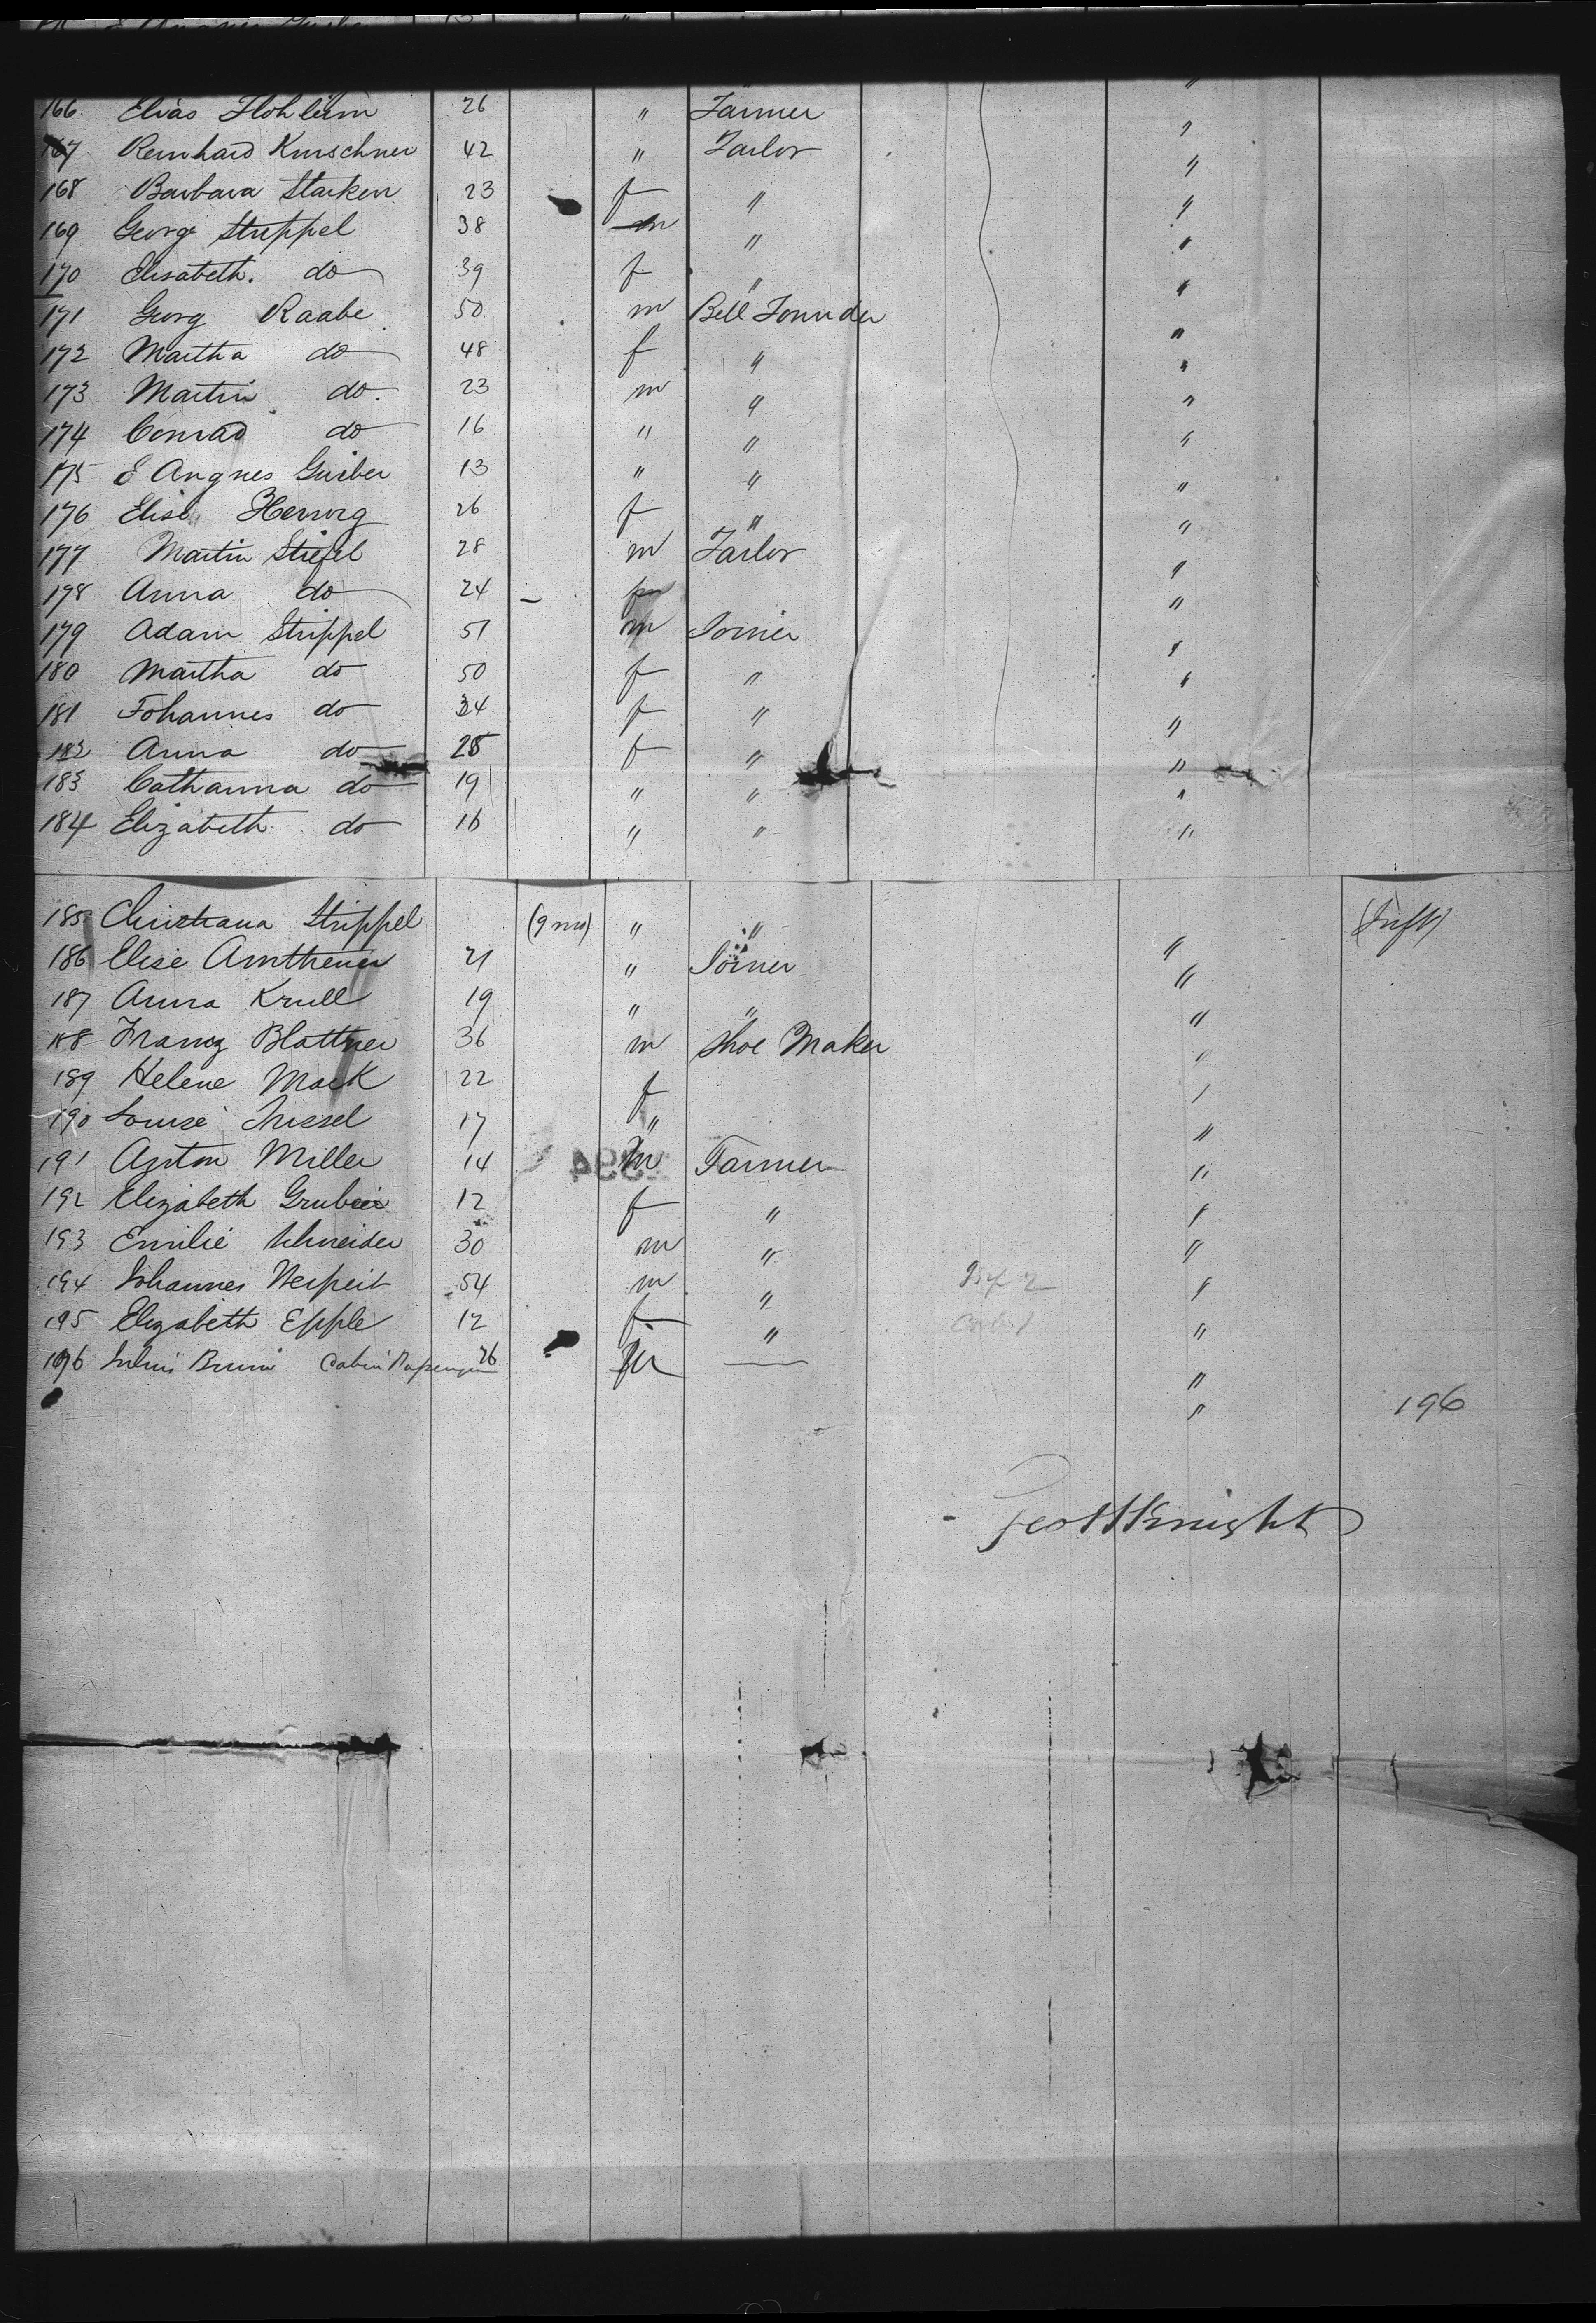 166 Elias Flohleim 26 " Farmer
167 Reinhard Kurschner 42 " Tailor "
168 Barbara Starken 23 f " "
169 George Strippel 38 m " "
170 Elisabeth. do 39 f " "
171 Georg Raabe 50 m Bell Founder "
172 Martha do 48 f " "
173 Martin do. 23 m " "
174 Conrad do 16 " " "
175 E Angnes Gerber 13 " " "
176 Elise Herwig 26 f " "
177 Martin Stiefel 28 m Tailor "
198 Anna do 24 — "
179 Adam Strippel 51 m Joiner "
180 Martha do 50 f " "
181 Johannes do 24 f " "
182 Anna do 25 f " "
183 Catharina do 19 " " "
184 Elizabeth do 16 " " "
185 Christiana Strippel (9 mo) " " (Inft)
186 Elise 21 " Joiner "
187 Anna Krull 19 " " "
188 Franz Blattner 36 m Shoe Maker "
189 Helene Mack 22 f "
190 Louise 17 " "
191 Anton Miller 14 m Farmer "
192 Elizabeth 12 f " "
193 Emilie Schneider 30 m " "
194 Johannes 54 m " "
195 Elizabeth Epple 12 f " "
196 Julius Cabin Passenger 26 m — "
" 196
Geo H Knight